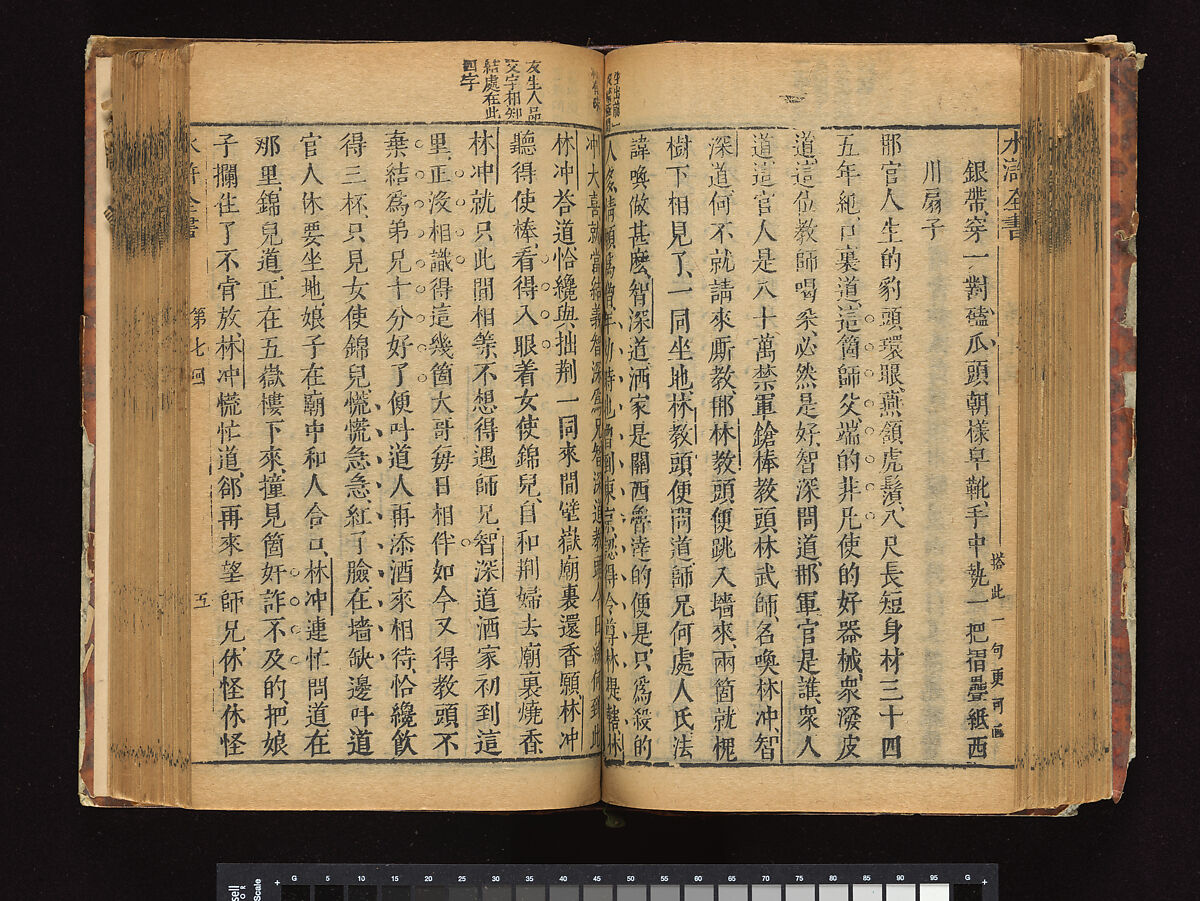 水滸全書
銀帶穿一對磕瓜頭朝樣皁靴手中執一把摺疊紙西
搭此一句更可画
川扇子
那官人生的豹頭環眼燕頷虎鬚八尺長短身材三十四
五年紀口裏道這箇師父端的非凡使的好器械衆潑皮
道這位教師喝采必然是好智深問道那軍官是誰衆人
道這官人是八十萬禁軍鎗棒教頭林武師名喚林冲智
深道何不就請來厮教那林教頭便跳入墻來兩箇就槐
樹下相見了一同坐地林教頭便問道師兄何處人氏法
諱喚做甚麽智深道洒家是關西魯達的便是只爲殺的
人多情願爲僧年幼時也曾到東京認得令尊林提轄林
冲大喜就當結義智深爲兄智深道教頭今日緣何到此
林冲荅道恰纔與拙荆一同來間壁嶽廟裏還香願林冲
聽得使棒看得入眼着女使錦兒自和荆婦去廟裏燒香
林冲就只此間相等不想得遇師兄智深道洒家初到這
里正没相識得這幾箇大哥每日相伴如今又得教頭不
棄結爲弟兄十分好了便叫道人再添酒來相待恰纔飲
得三杯只見女使錦兒慌慌急急紅了臉在墻缺邊叫道
官人休要坐地娘子在廟中和人合口林冲連忙問道在
那里錦兒道正在五嶽樓下來撞見箇奸詐不及的把娘
子攔住了不肯放林冲慌忙道郤再來望師兄休怪休怪
水滸全書
第七回
五
友生人品
交字相知
結處在此
四字
G 5 10 15 20 25 30 35 40 45 50 55 60 65 70 75 80 85 90 95 G